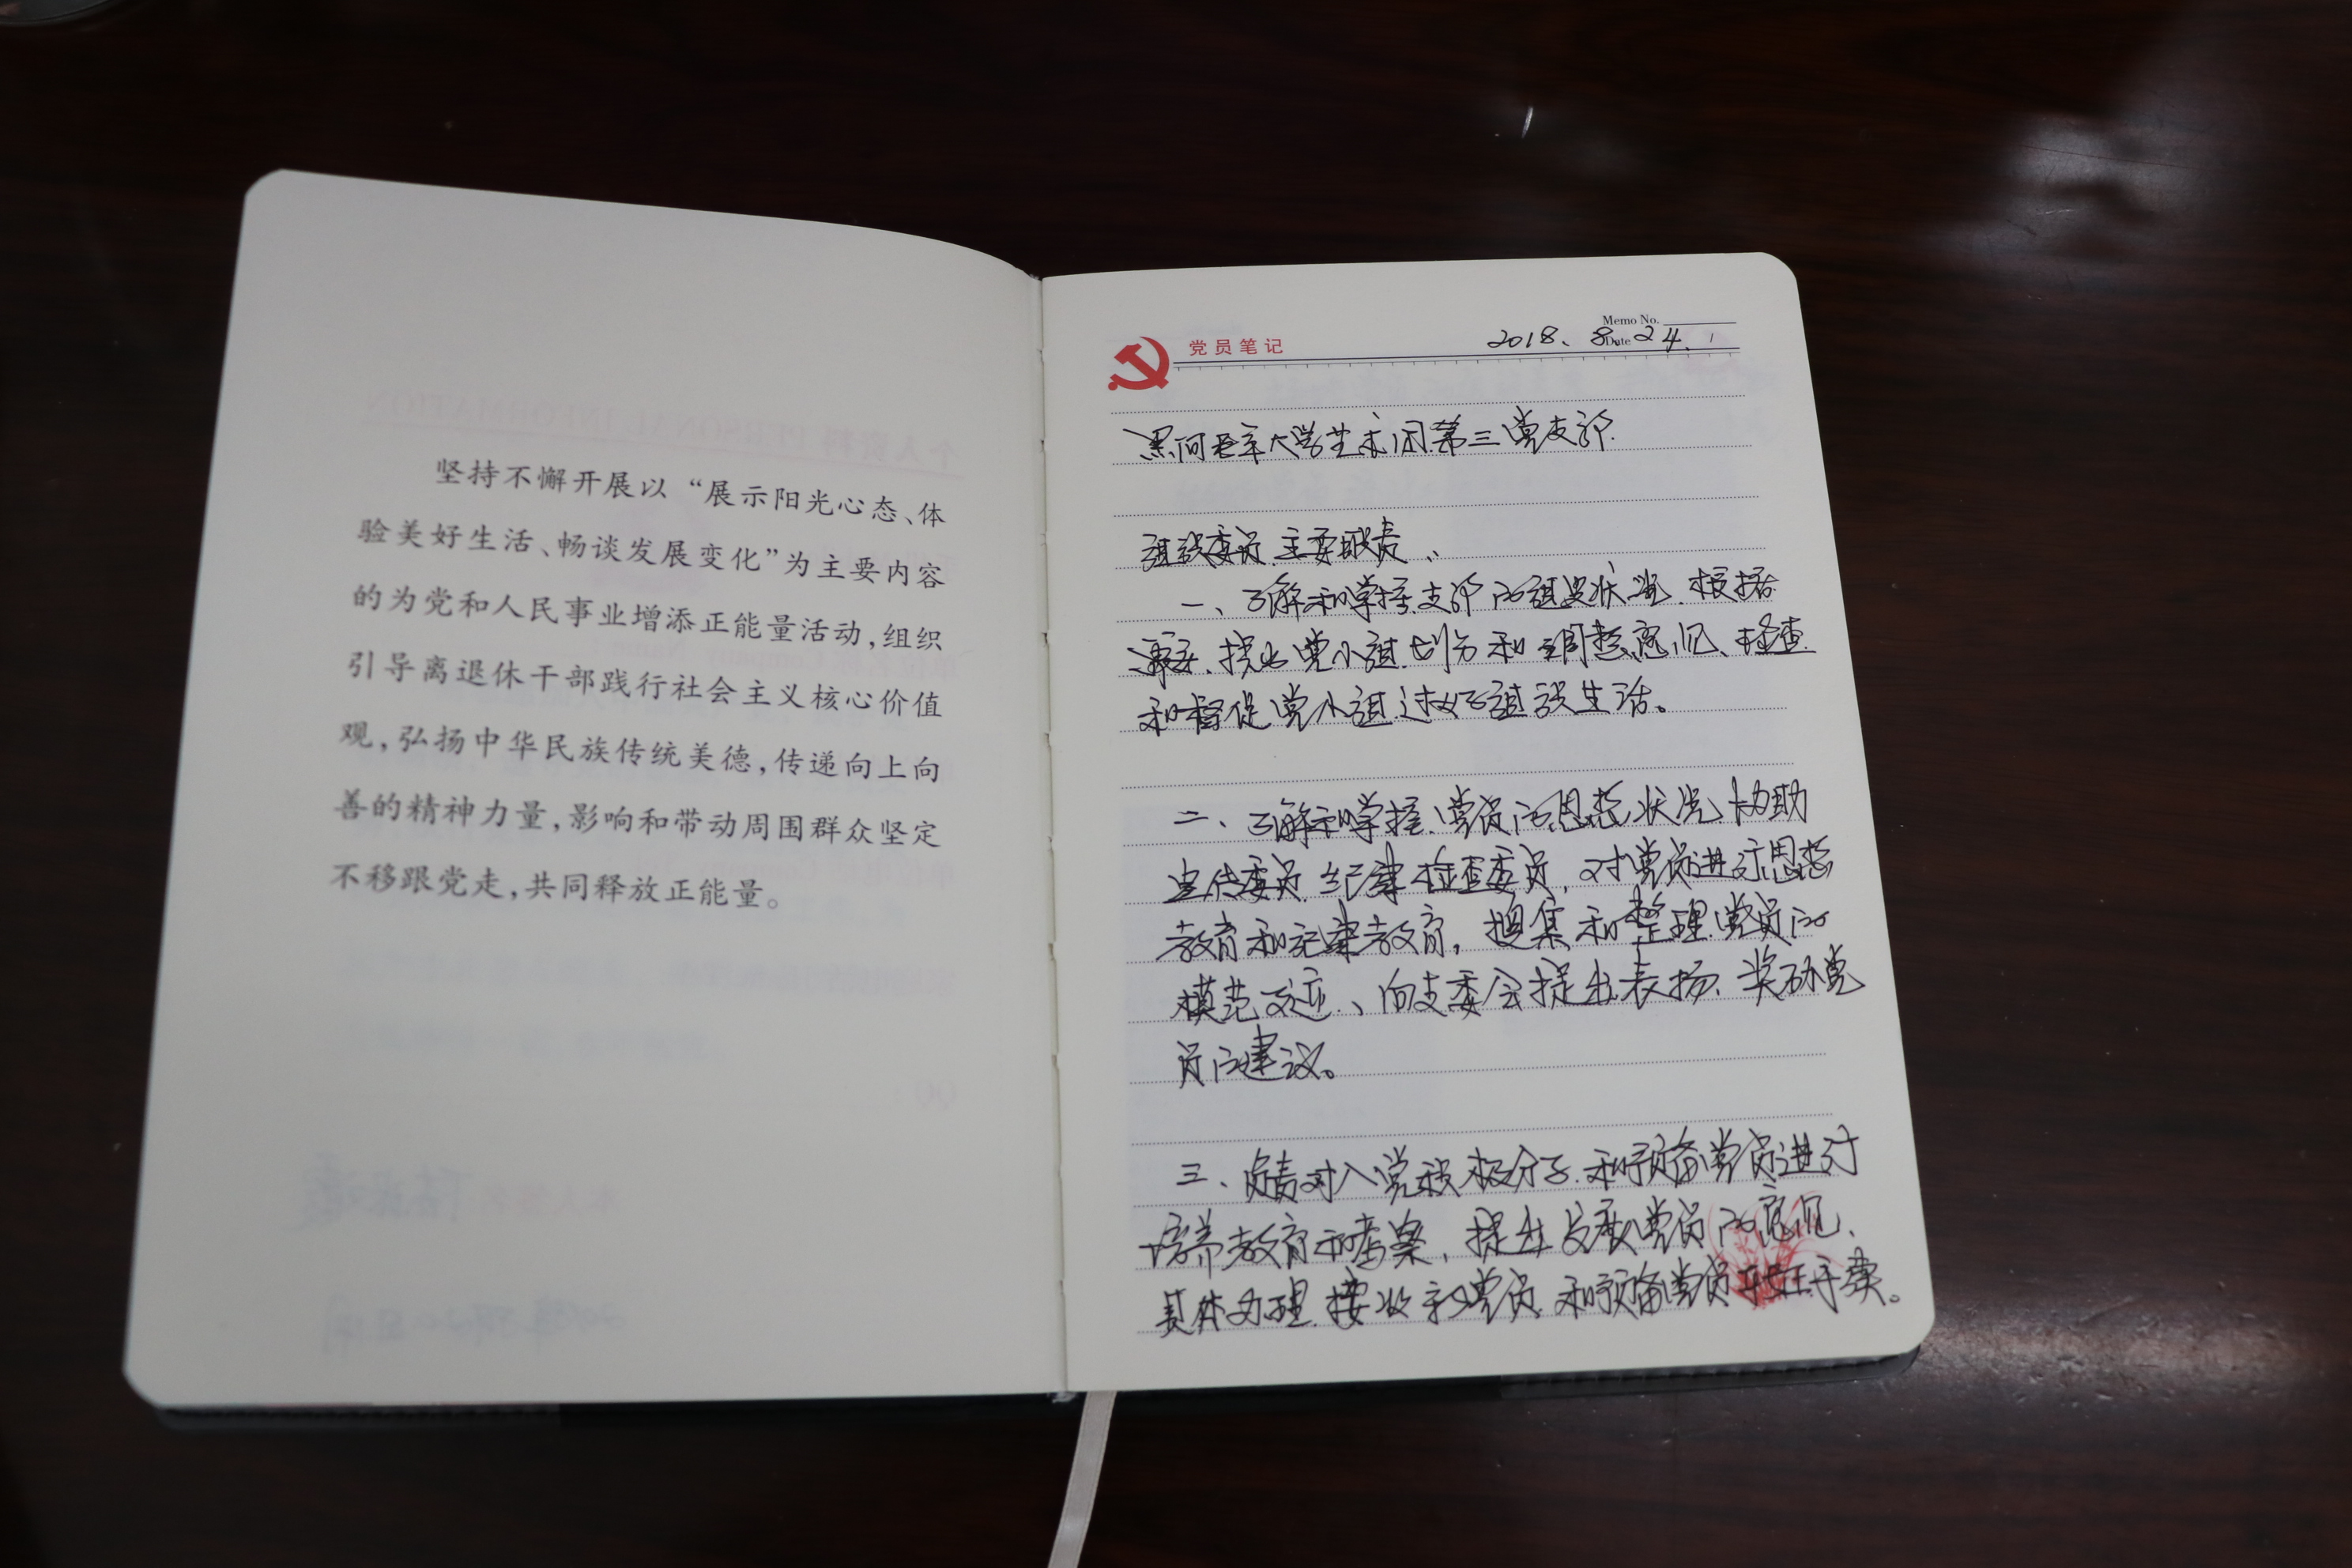 坚持不懈开展以“展示阳光心态、体
验美好生活、畅谈发展变化”为主要内容
的为党和人民事业增添正能量活动,组织
引导离退休干部践行社会主义核心价值
观,弘扬中华民族传统美德,传递向上向
善的精神力量,影响和带动周围群众坚定
不移跟党走,共同释放正能量。
党员笔记
Memo No.
Date
2018、8、24、1
黑河老年大学艺术团第三党支部
组织委员主要职责、
一、了解和掌握支部的组织状况、根据
需要、提出党小组划分和调整意见、检查
和督促党小组过好组织生活。
二、了解和掌握党员的思想状况、协助
宣传委员、纪律检查委员,对党员进行思想
教育和纪律教育,搜集和整理党员的
模范事迹、向支委会提出表扬、奖励党
员的建议。
三、负责对入党积极分子和预备党员进行
培养教育和考察,提出发展党员的意见、
具体办理接收新党员和预备党员转正手续。